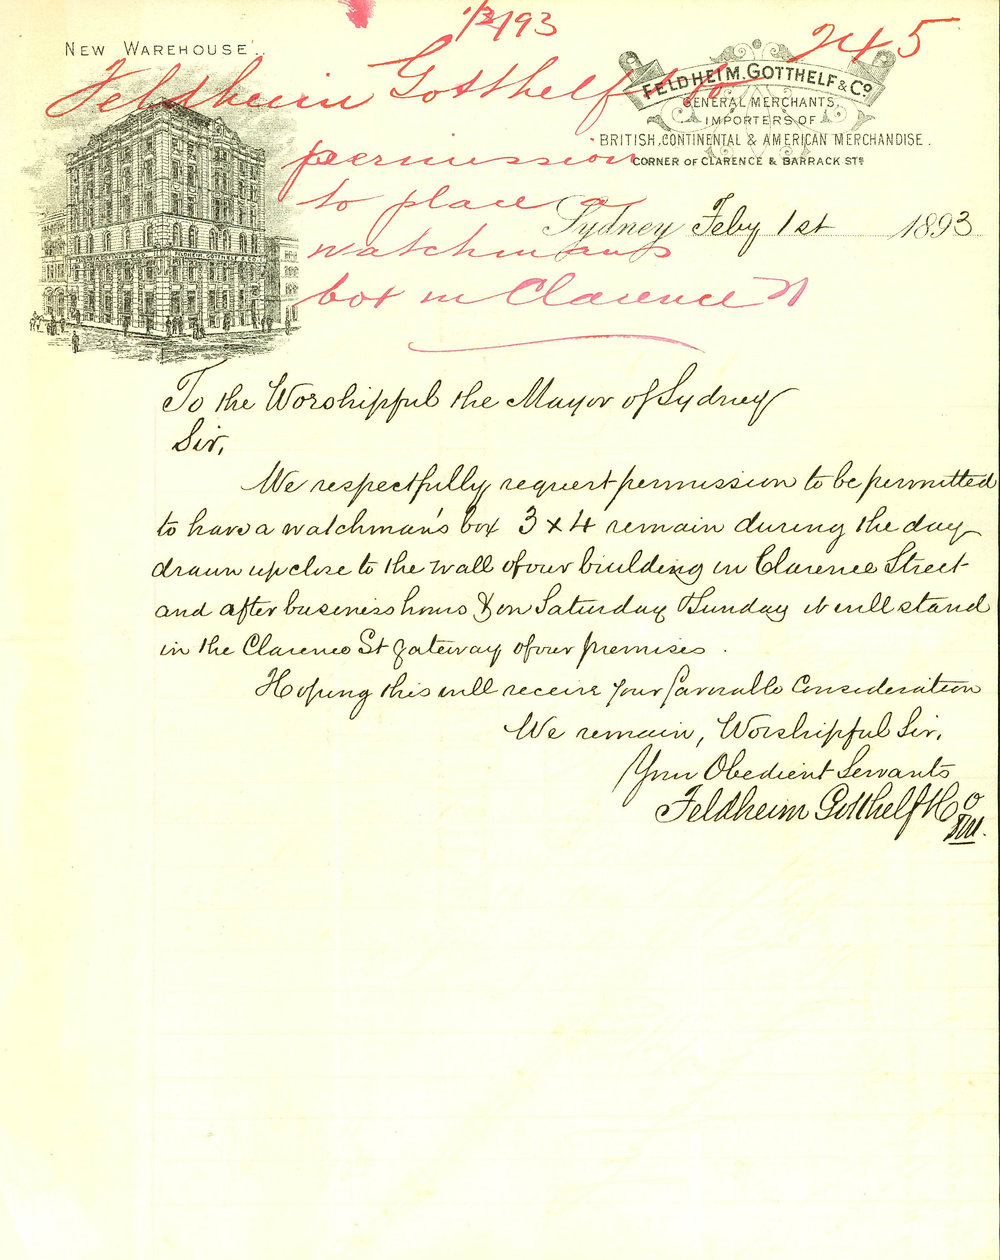 1/2/93
245
NEW WAREHOUSE
FELDHEIM, GOTTHELF & Co
GENERAL MERCHANTS,
IMPORTERS OF
BRITISH, CONTINENTAL & AMERICAN MERCHANDISE.
CORNER OF CLARENCE & BARRACK STS
Feldheim Gotthelf & Co
permission
to place a
watchmans
box in Clarence St
Sydney Feby 1st 1893
FELDHEIM, GOTTHELF & Co
To the Worshipful the Mayor of Sydney
Sir,
We respectfully request permission to be permitted
to have a watchman's box 3 x 4 remain during the day
drawn up close to the wall of our building in Clarence Street
and after business hours & on Saturday & Sunday it will stand
in the Clarence St gateway of our premises.
Hoping this will receive your favorable consideration
We remain, Worshipful Sir,
Your Obedient Servants
Feldheim Gotthelf & Co